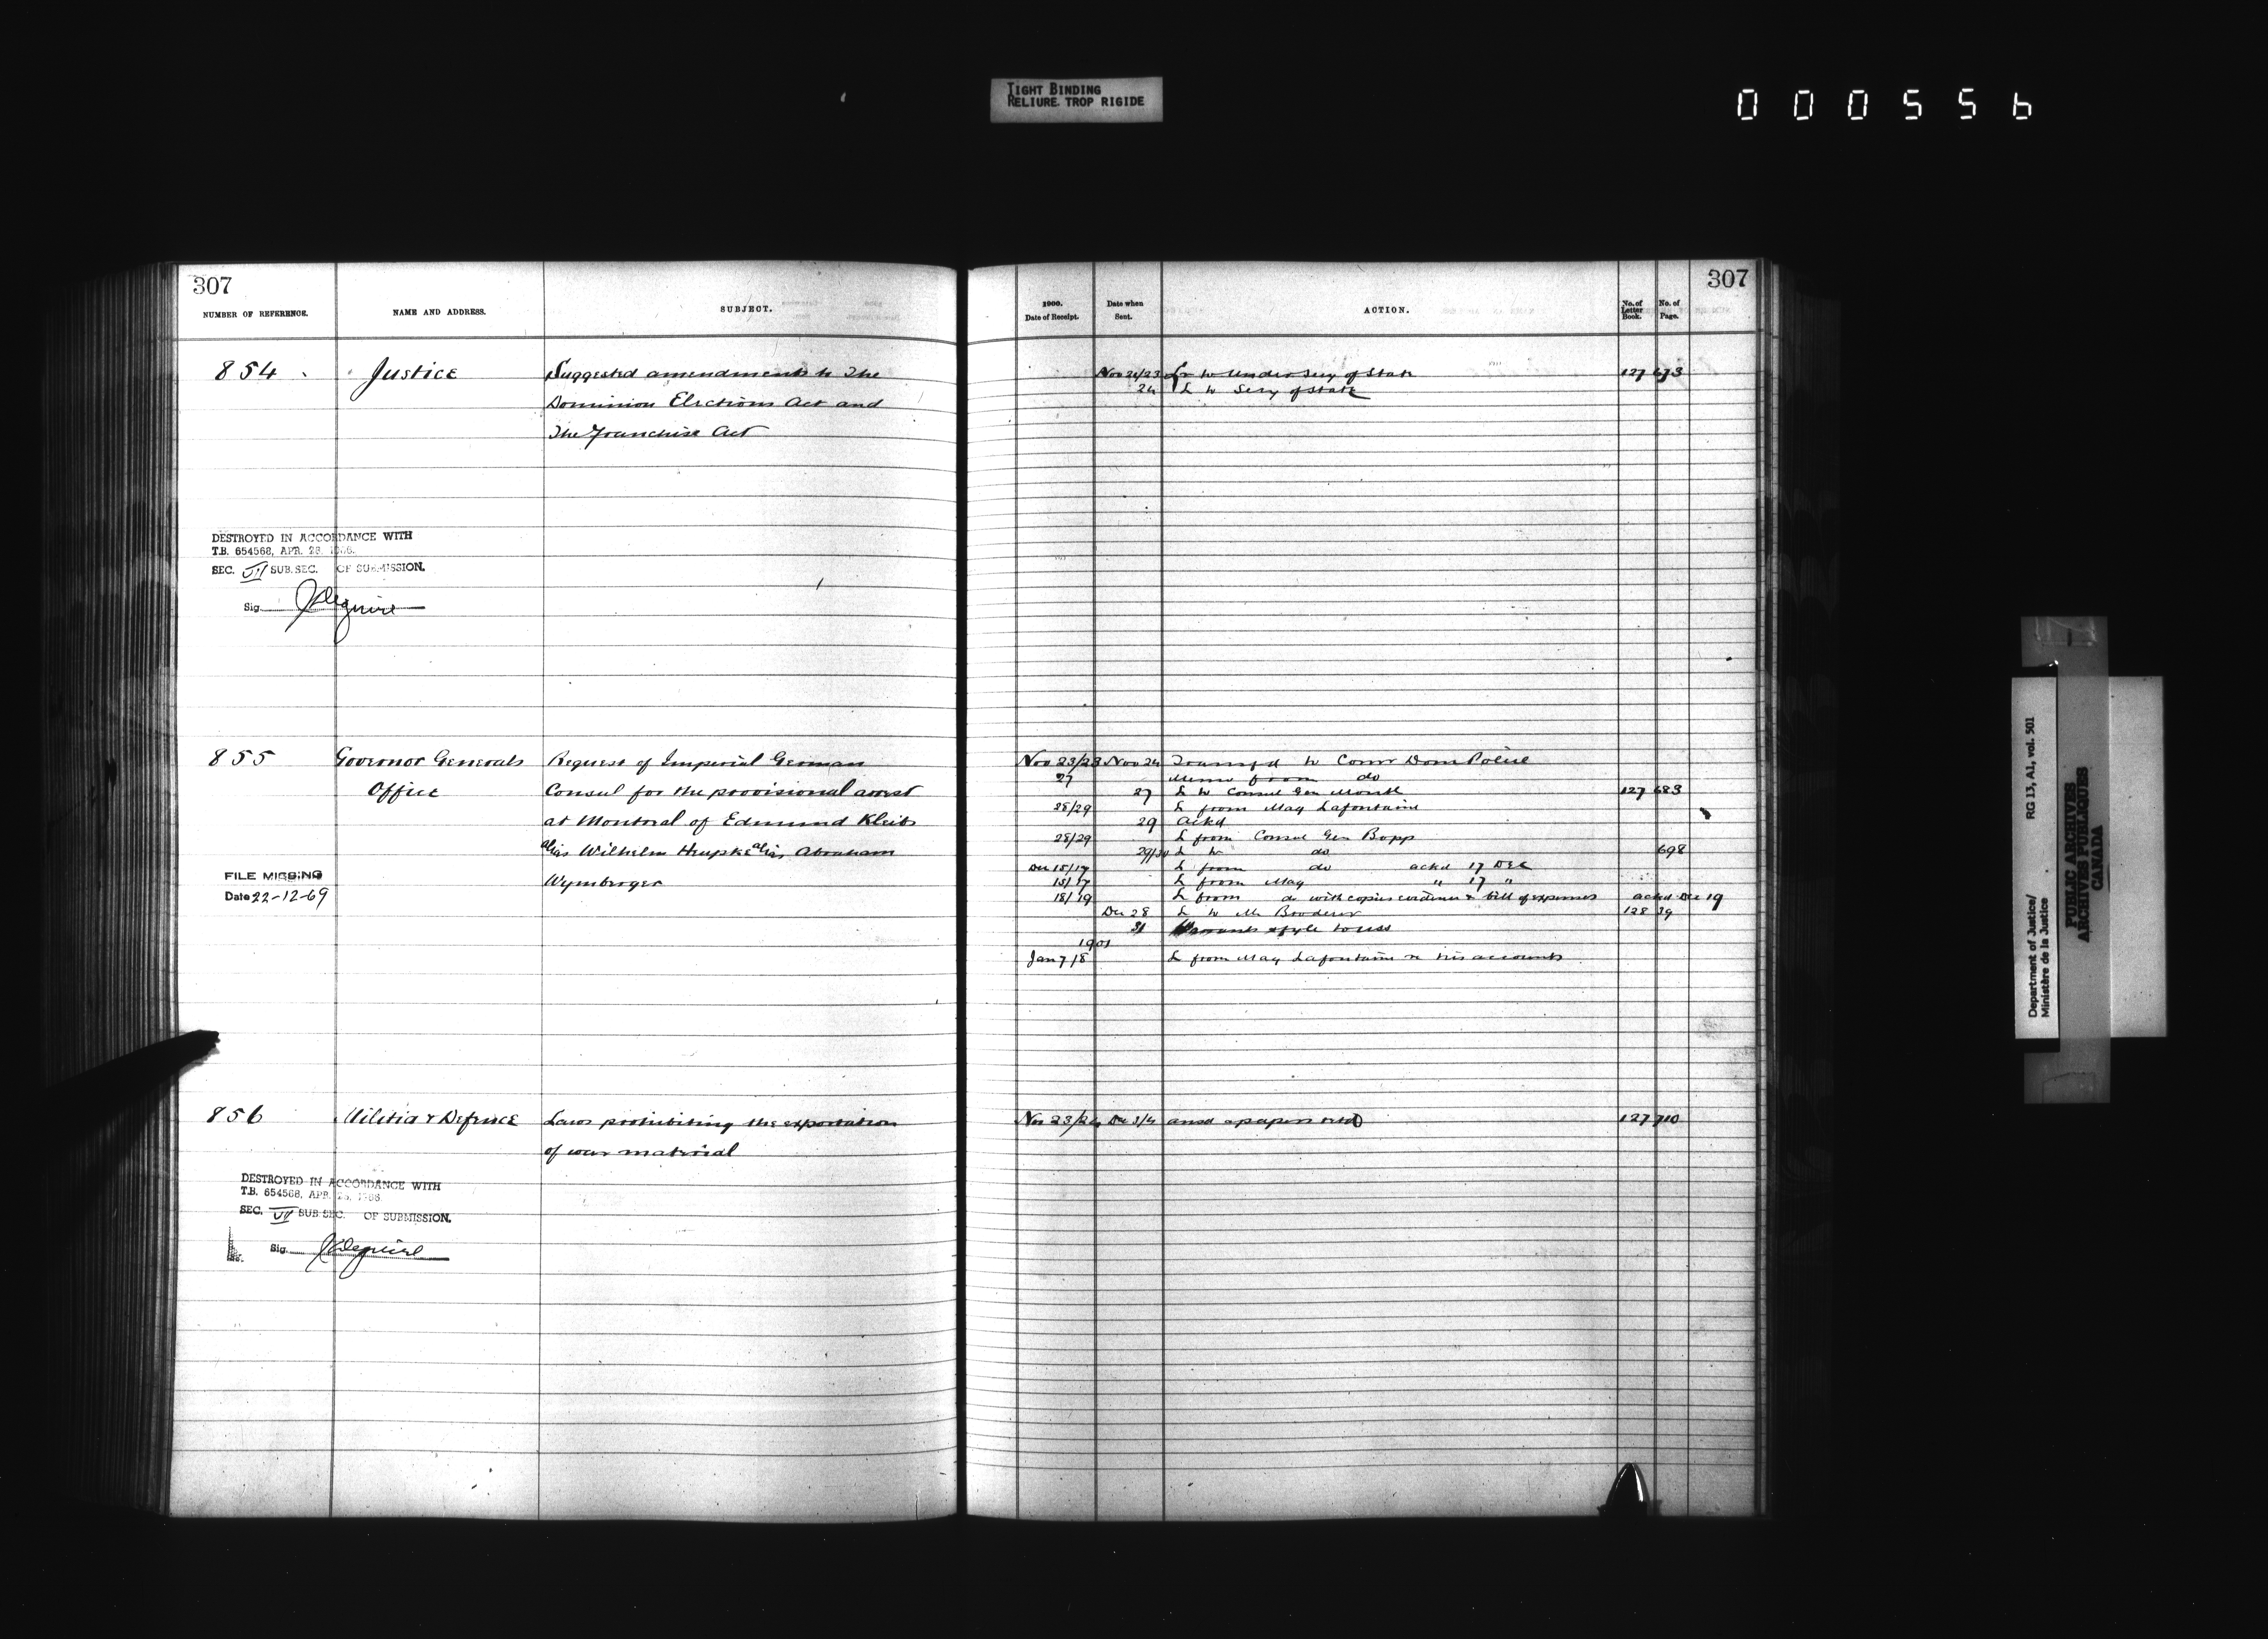 TIGHT BINDING
RELIURE TROP RIGIDE
000556
307
NUMBER OF REFERENCE.
NAME AND ADDRESS.
SUBJECT.
854
Justice
Suggested amendments to The
Dominion Elections Act and
The Franchise Act
DESTROYED IN ACCORDANCE WITH
T.B. 654568, APR. 28, 1966.
SEC. VII SUB.SEC. OF SUBMISSION.
Sig.
855
Governor Generals
Office
Request of Imperial German
Consul for the provisional arrest
at Montreal of Edmund Kleits
alias Wilhelm alias Abraham
FILE MISSING
Date 22-12-69
856
Militia & Defence
Laws prohibiting the exportation
of war material
DESTROYED IN ACCORDANCE WITH
T.B. 654568, APR. 28, 1966
SEC. VII SUB SEC. OF SUBMISSION.
Sig.
307
1900.
Date of Receipt.
Date when
Sent.
ACTION.
No. of
Letter
Book.
No. of
Page.
Nov 21/23 L to Under Secy of State 127 673
24 L to Secy of State
Nov 23/23 Nov 24 Transfd to Comr Dom Police
27 Memo from do
27 L to Consul Gen Montl 127 683
28/29 L from Mag Lafontaine
29 Ackd
28/29 L from Consul Gen Bopp
29/30 L to do 698
Dec 15/17 L from do ackd 17 Dec
15/17 L from Mag " 17 "
18/19 L from do with copies evidence & bill of expenses ackd Dec 19
Dec 28 L to Mr 128 39
31
1901
Jan 7/8 L from Mag Lafontaine re his accounts
Nov 23/24 Dec 3/4 ansd & papers retd 127 710
Department of Justice/
Ministère de la Justice
RG 13, A1, vol. 501
PUBLIC ARCHIVES
ARCHIVES PUBLIQUES
CANADA